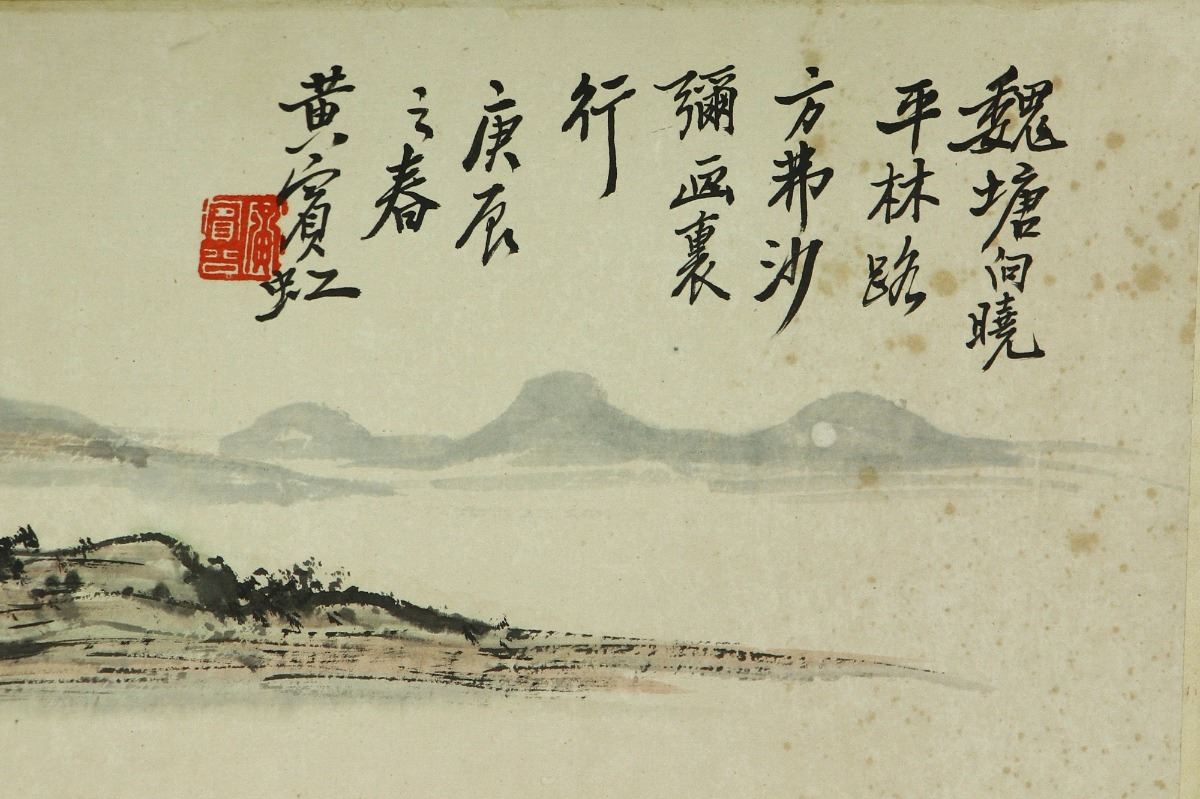 魏塘向曉
平林路
方弗沙
彌画裏
行
庚辰
之春
黄賓虹